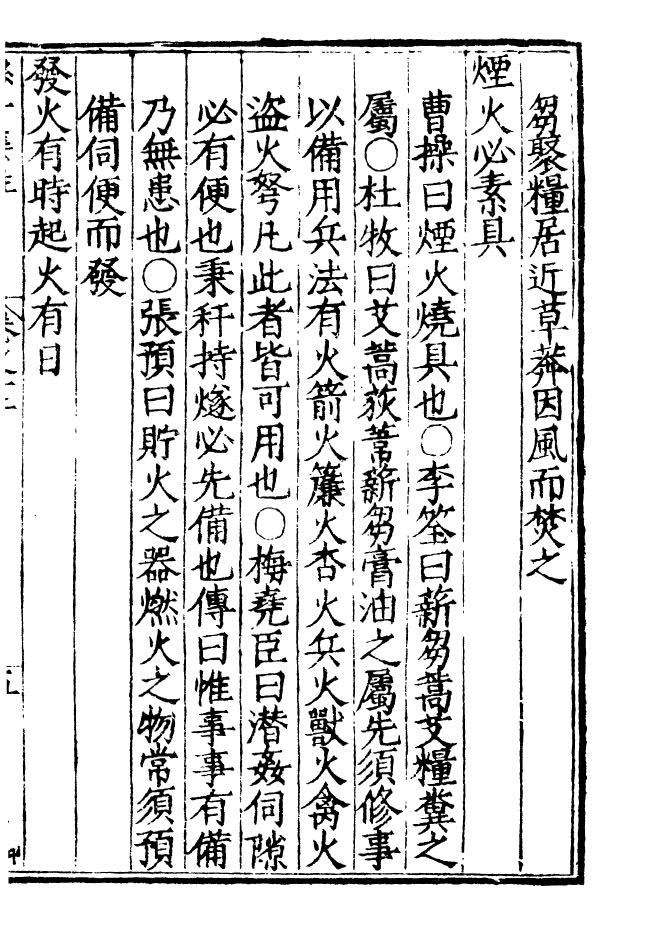 芻聚糧居近草莽因風而焚之
煙火必素具
曹操曰煙火燒具也○李筌曰薪芻蒿艾糧糞之
屬○杜牧曰艾蒿荻葦薪芻膏油之屬先須修事
以備用兵法有火箭火簾火杏火兵火獸火禽火
盜火弩凡此者皆可用也○梅堯臣曰潜姦伺隙
必有便也秉秆持燧必先備也傳曰惟事事有備
乃無患也○張預曰貯火之器燃火之物常須預
備伺便而發
發火有時起火有日